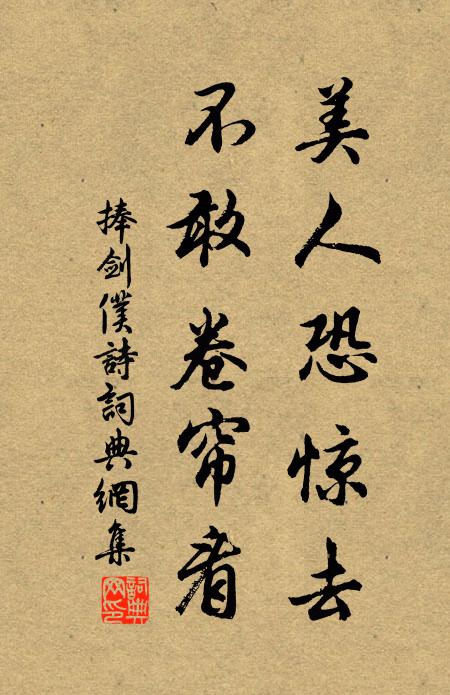 美人恐惊去
不敢卷帘看
捧剑僕詩詞典網集
詞典網印